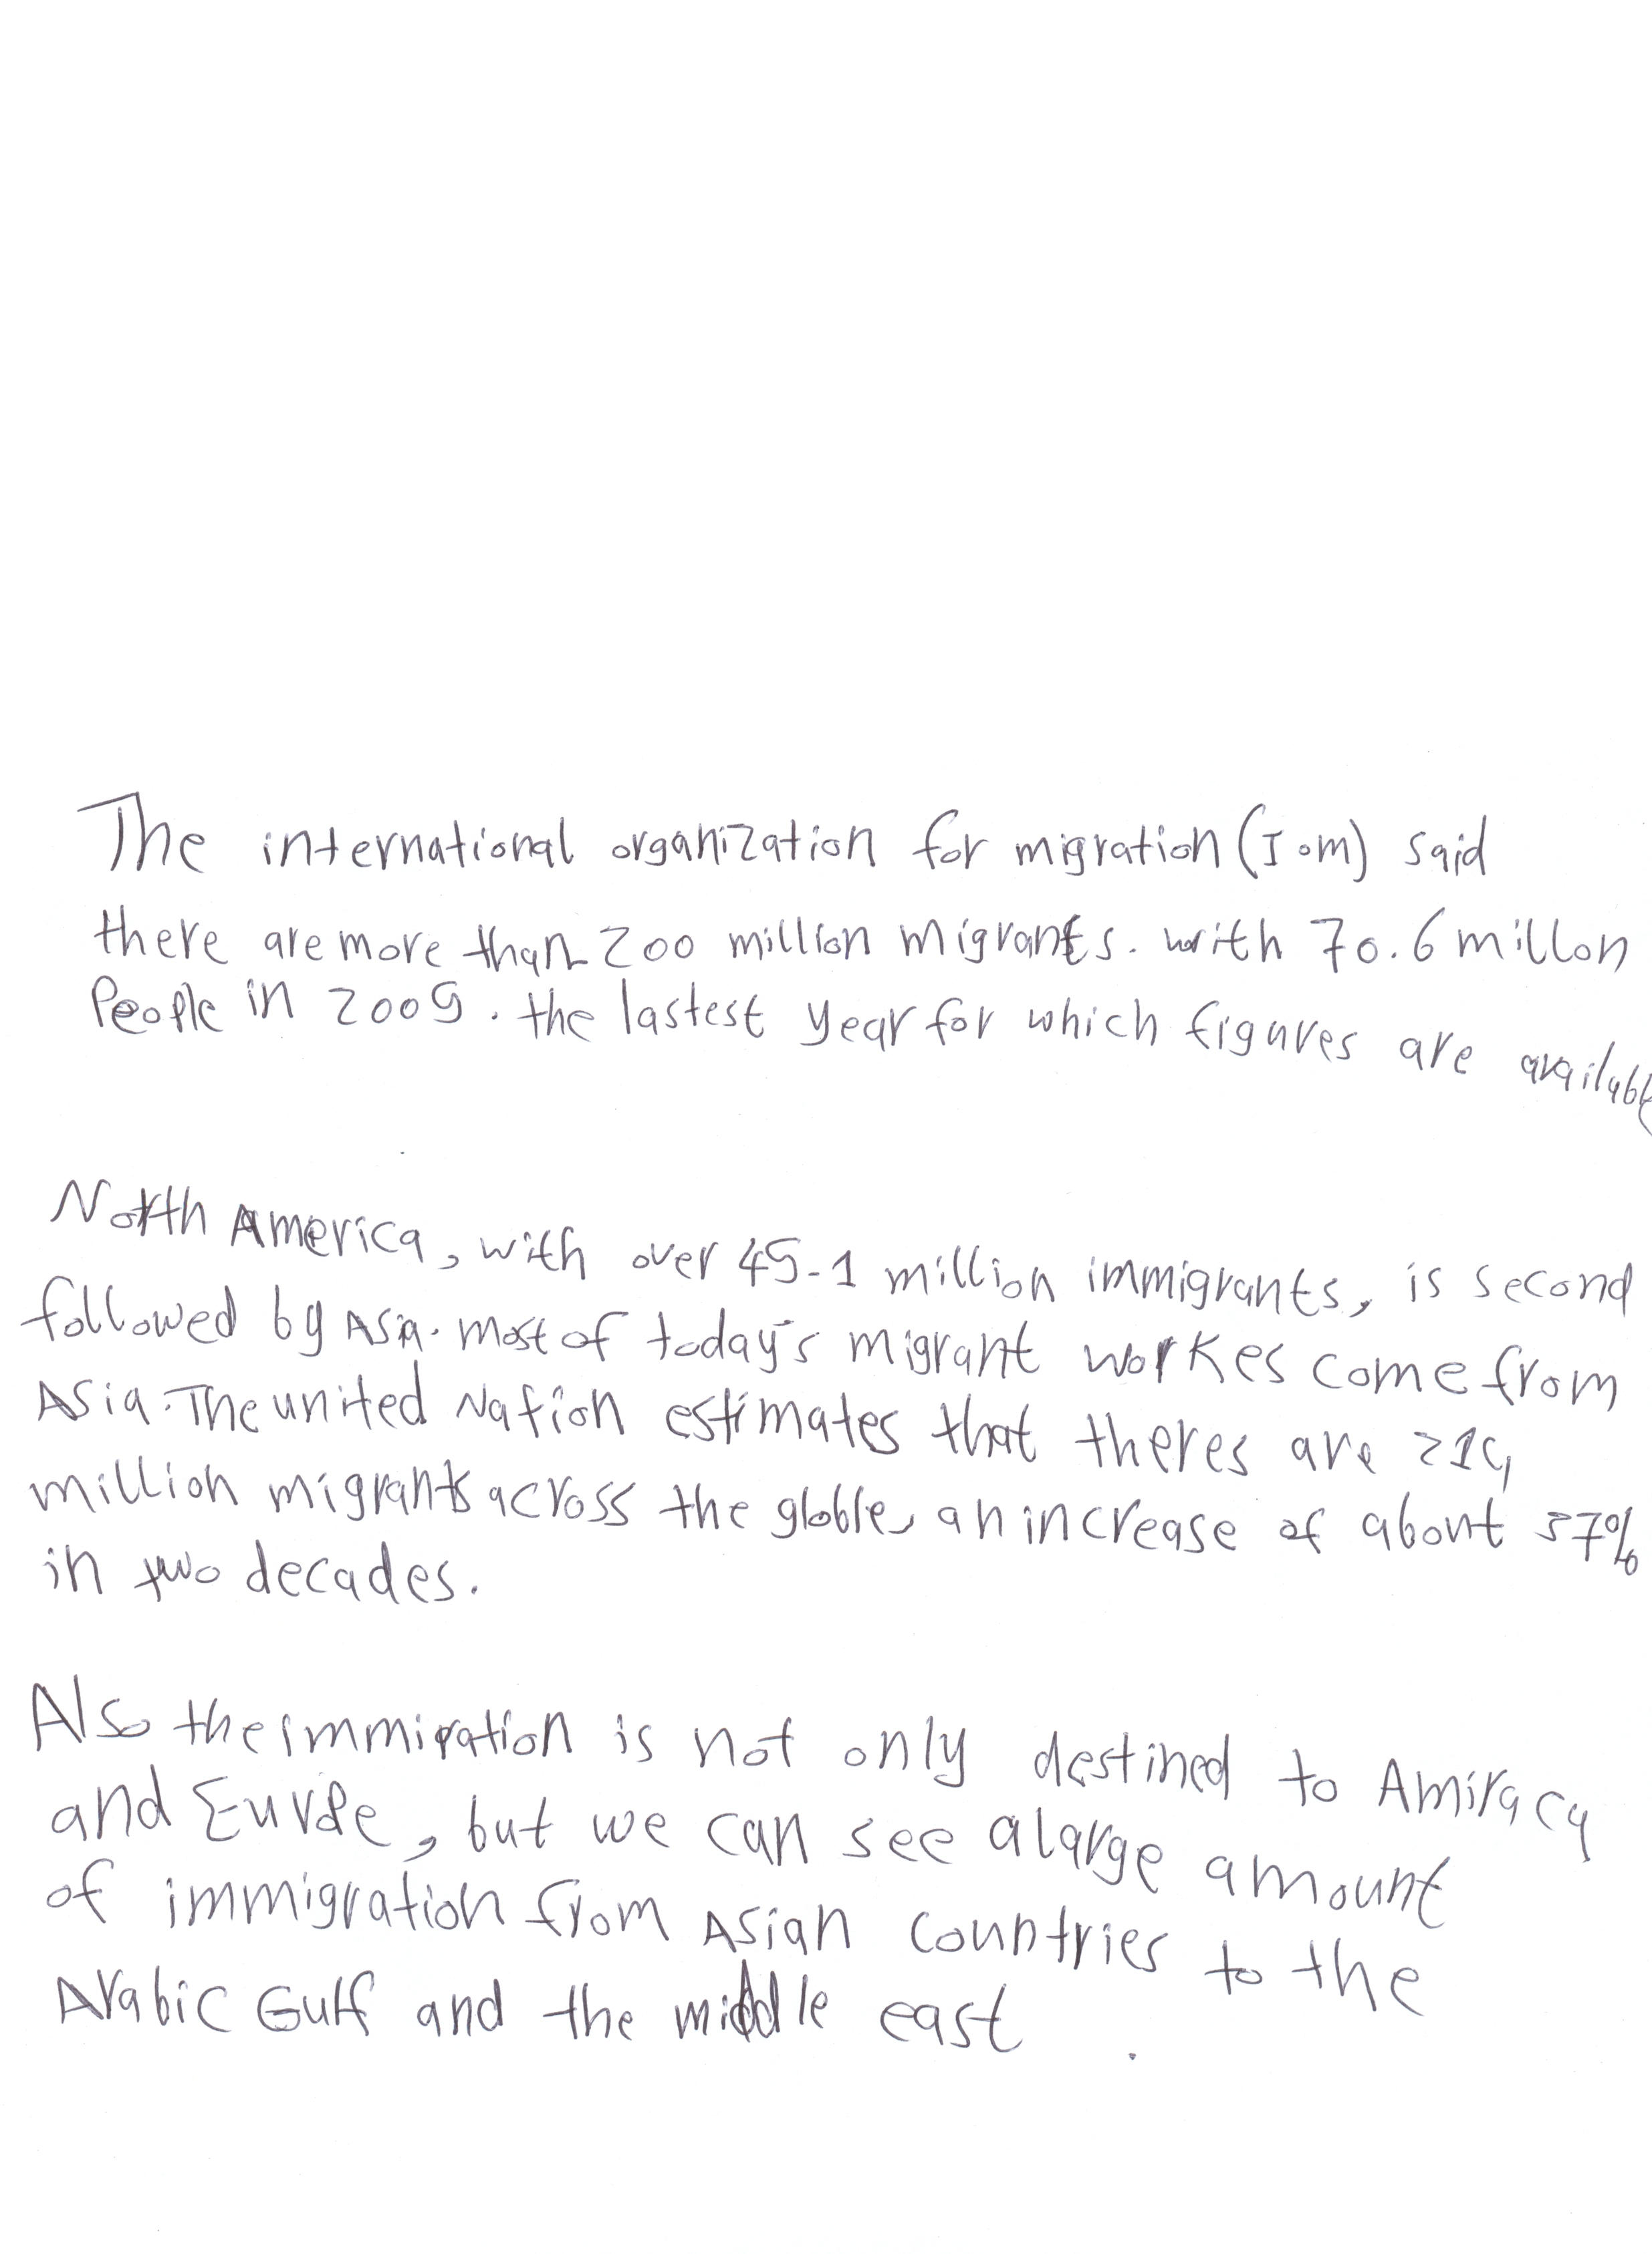 The international organization for migration (Iom) said
there are more than 200 million migrants. with 70.6 millon
People in 2009. the lastest year for which figures are availabl
North America, with over 45-1 million immigrants, is second
followed by Asia. most of today's migrant workes come from
Asia. The united Nation estimates that theres are 214
million migrants across the globle, an increase of about 37%
in two decades.
Also the immiration is not only destined to Amiracy
and Eurpe, but we can see a large amount
of immigration from Asian countries to the
Arabic Gulf and the middle east .